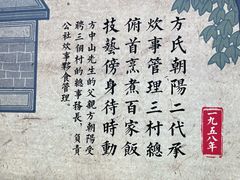 方氏朝陽二代承
炊事管理三村總
俯首烹煮百家飯
技藝傍身待時動
方中山先生的父親方朝陽受
聘三個村的總事務長，負責
公社炊事夥食管理。
一九五八年